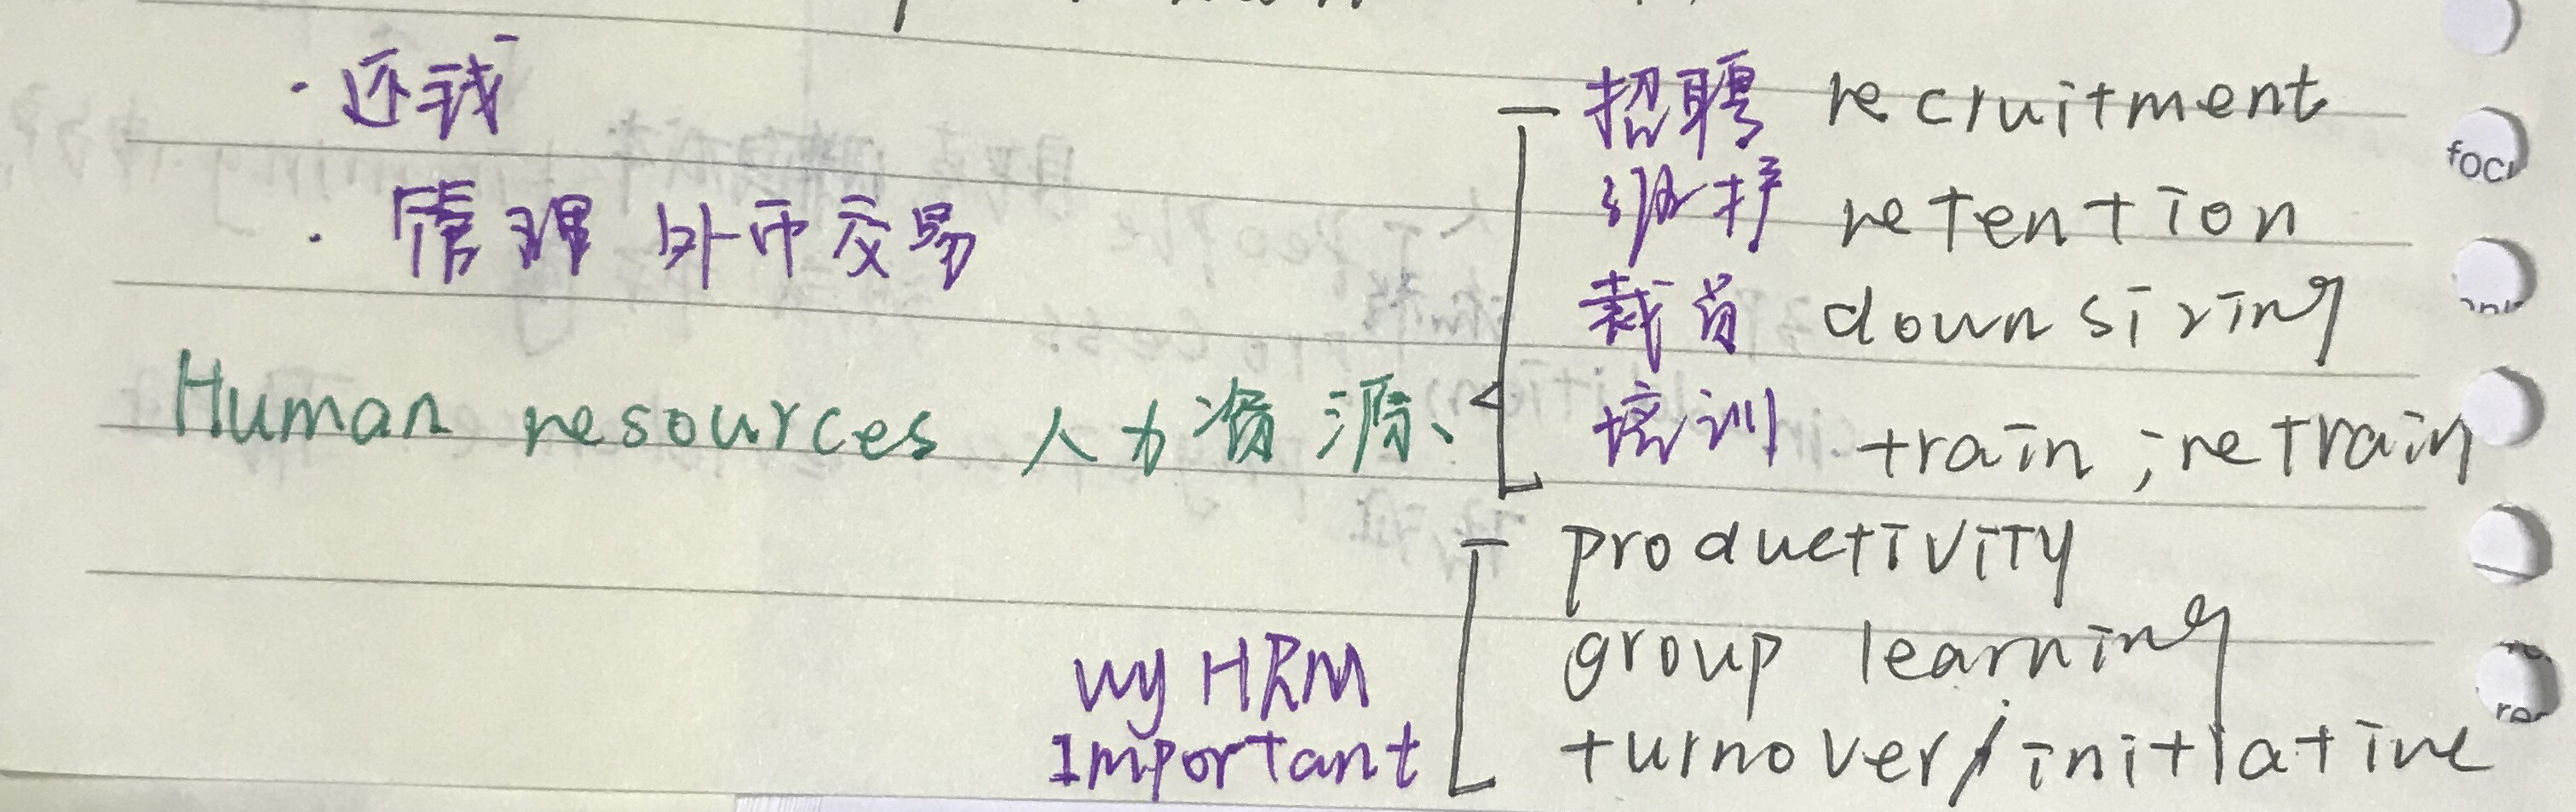 · 还钱
· 管理 外币交易
招聘 recruitment
维护 retention
裁员 downsizing
Human resources 人力资源、
培训 train ; retrain
productivity
wy HRM
group learning
Important
turnover / initiative